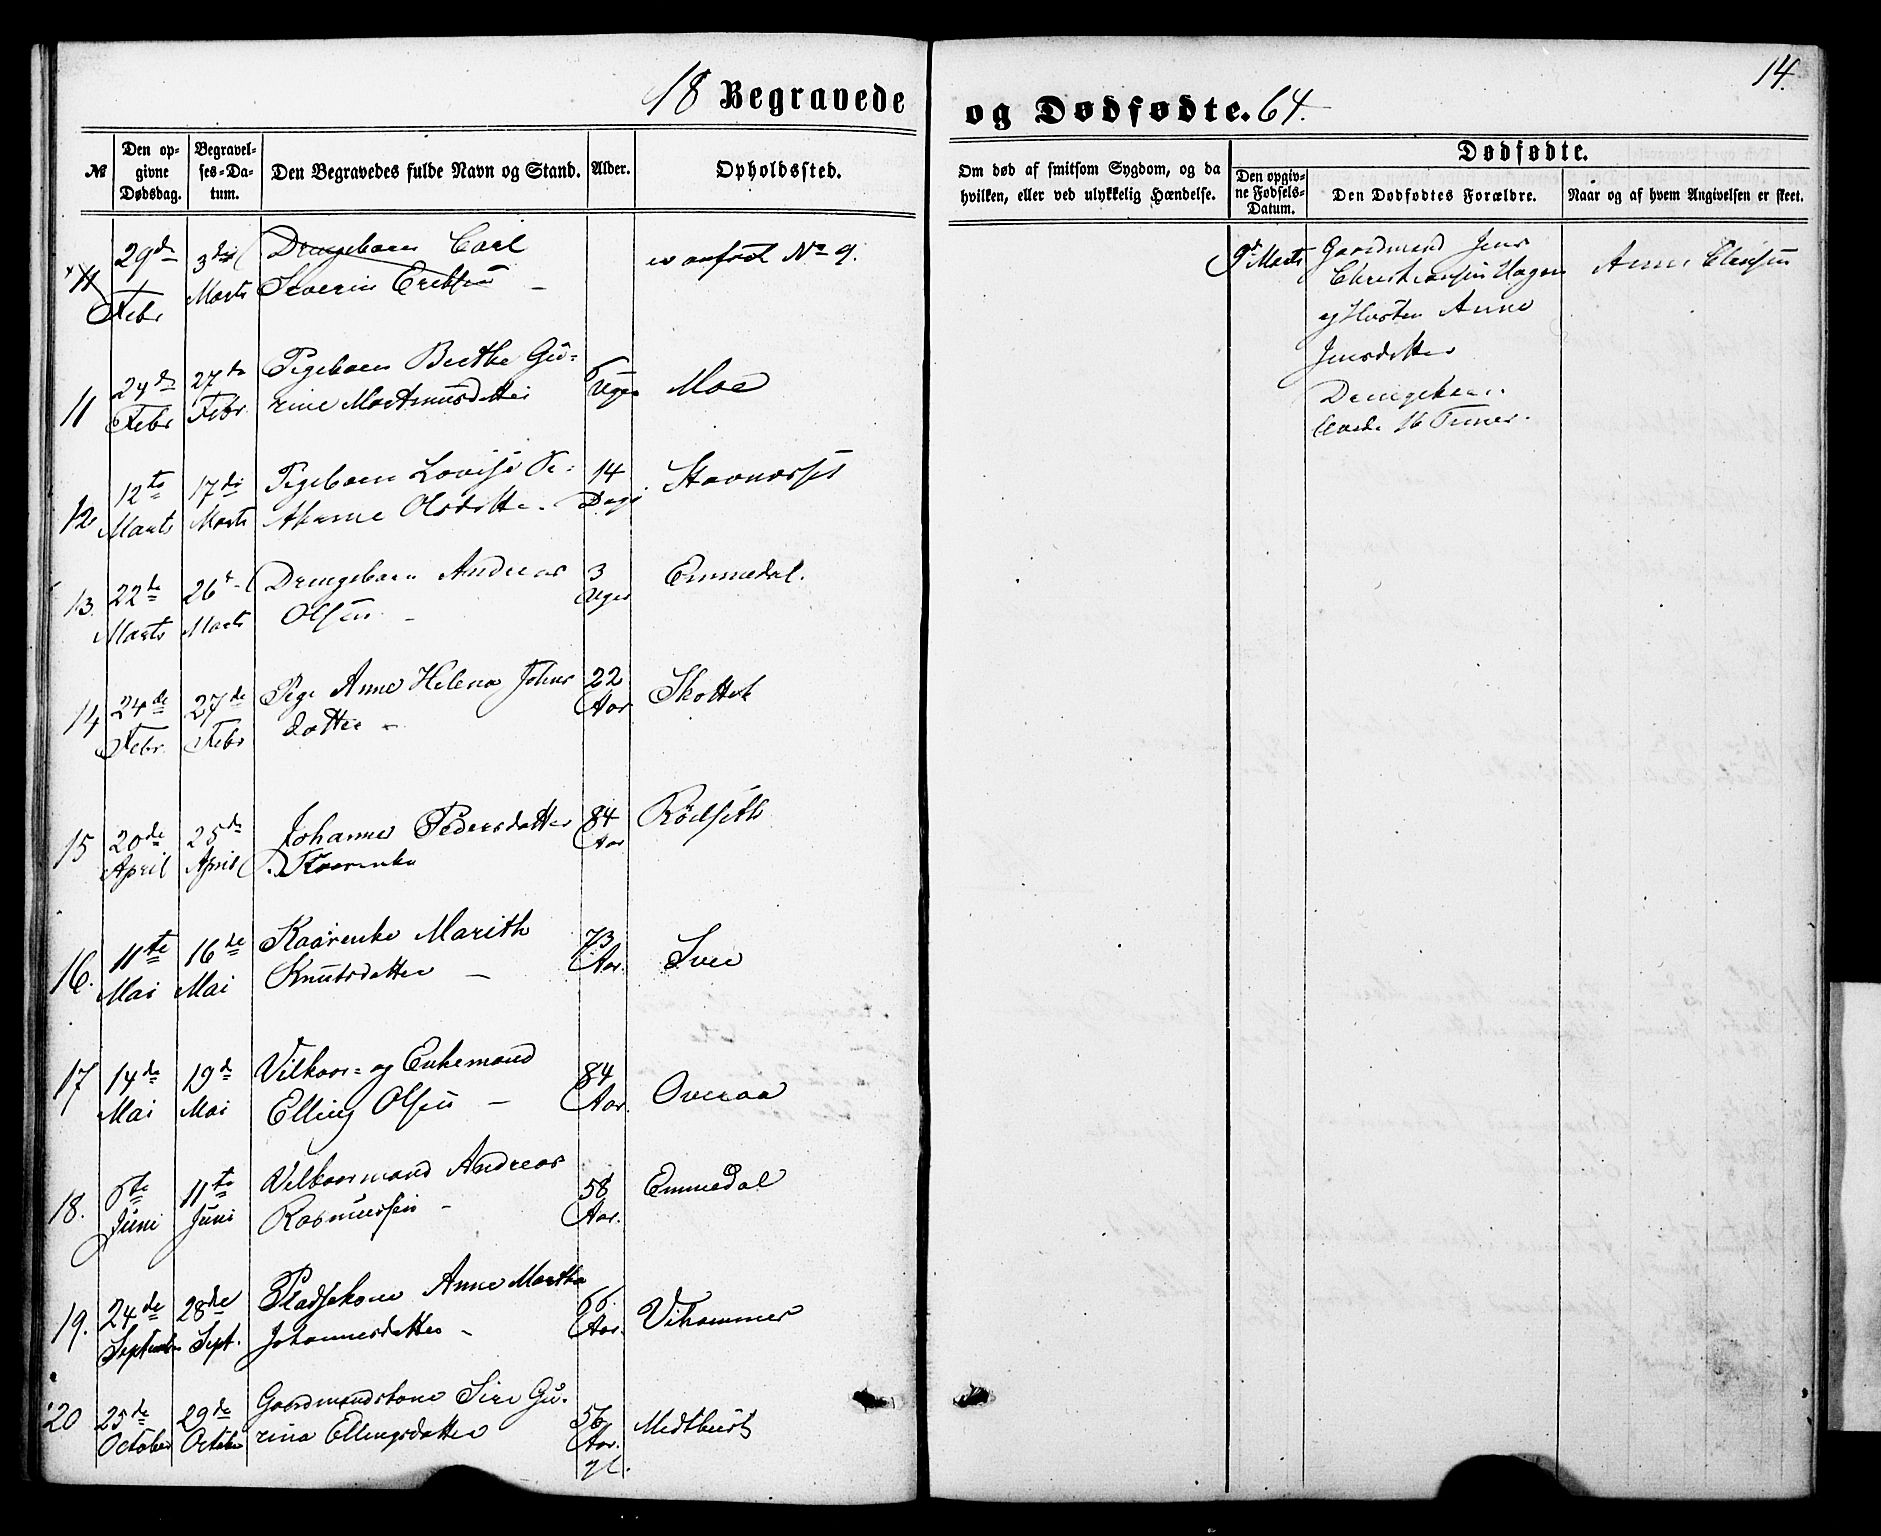 18 Begravede
№
Den op-
givne
Dødsdag.
Begravel-
ses-Da-
tum.
Den Begravedes fulde Navn og Stand.
Alder.
Opholdssted.
11 29de Febr 3die Marts Drengebarn Carl
Severin
er anført No 9.
11 24de Febr 27de Febr Pigebarn Berthe Gu-
rine Martinusdatter
6 Uger
Moe
12 12te Marts 17de Marts Pigebarn Lovise Pe-
Olsdatter
14 Dage
13. 22de Marts 26de Marts Drengebarn Andreas
Olsen
3 Uger
Emmedal.
14 24de Febr. 27de Febr Pige Anne Helena Johns
datter
22 Aar
Skottet
15 20de April 25de April Johanne Pedersdatter
Kaarenke
84 Aar
Rödseth
16. 11te Mai 16de Mai Kaarenke Marith
Knutsdatter
73 Aar.
Svee
17 14de Mai 19de Mai Vilkaar- og Enkemand
Elling Olsen
84 Aar.
Overaa
18. 6te Juni 11te Juni Vilkaarmand Andreas
Rasmussen
58 Aar.
Emmedal
19. 24de September 28de Sept. Pladsekone Anne Martha
Johannesdatter
66 Aar.
Vihammer
20 25de October 29de October Gaardmandskone Siri Gu-
rina Ellingsdatter
56 Aar. gl.
14.
og Dødfødte. 64.
Om død af smitsom Sygdom, og da
hvilken, eller ved ulykkelig Hændelse.
Dødfødte.
Den opgiv-
ne Fødsels-
Datum.
Den Dødfødtes Forældre.
Naar og af hvem Angivelsen er skeet.
9de Marts
Gaardmand Jens
Christiansen Hagen
og Hustru Anne
Jensdatter
Drengebarn.
16 Timer.
Anne